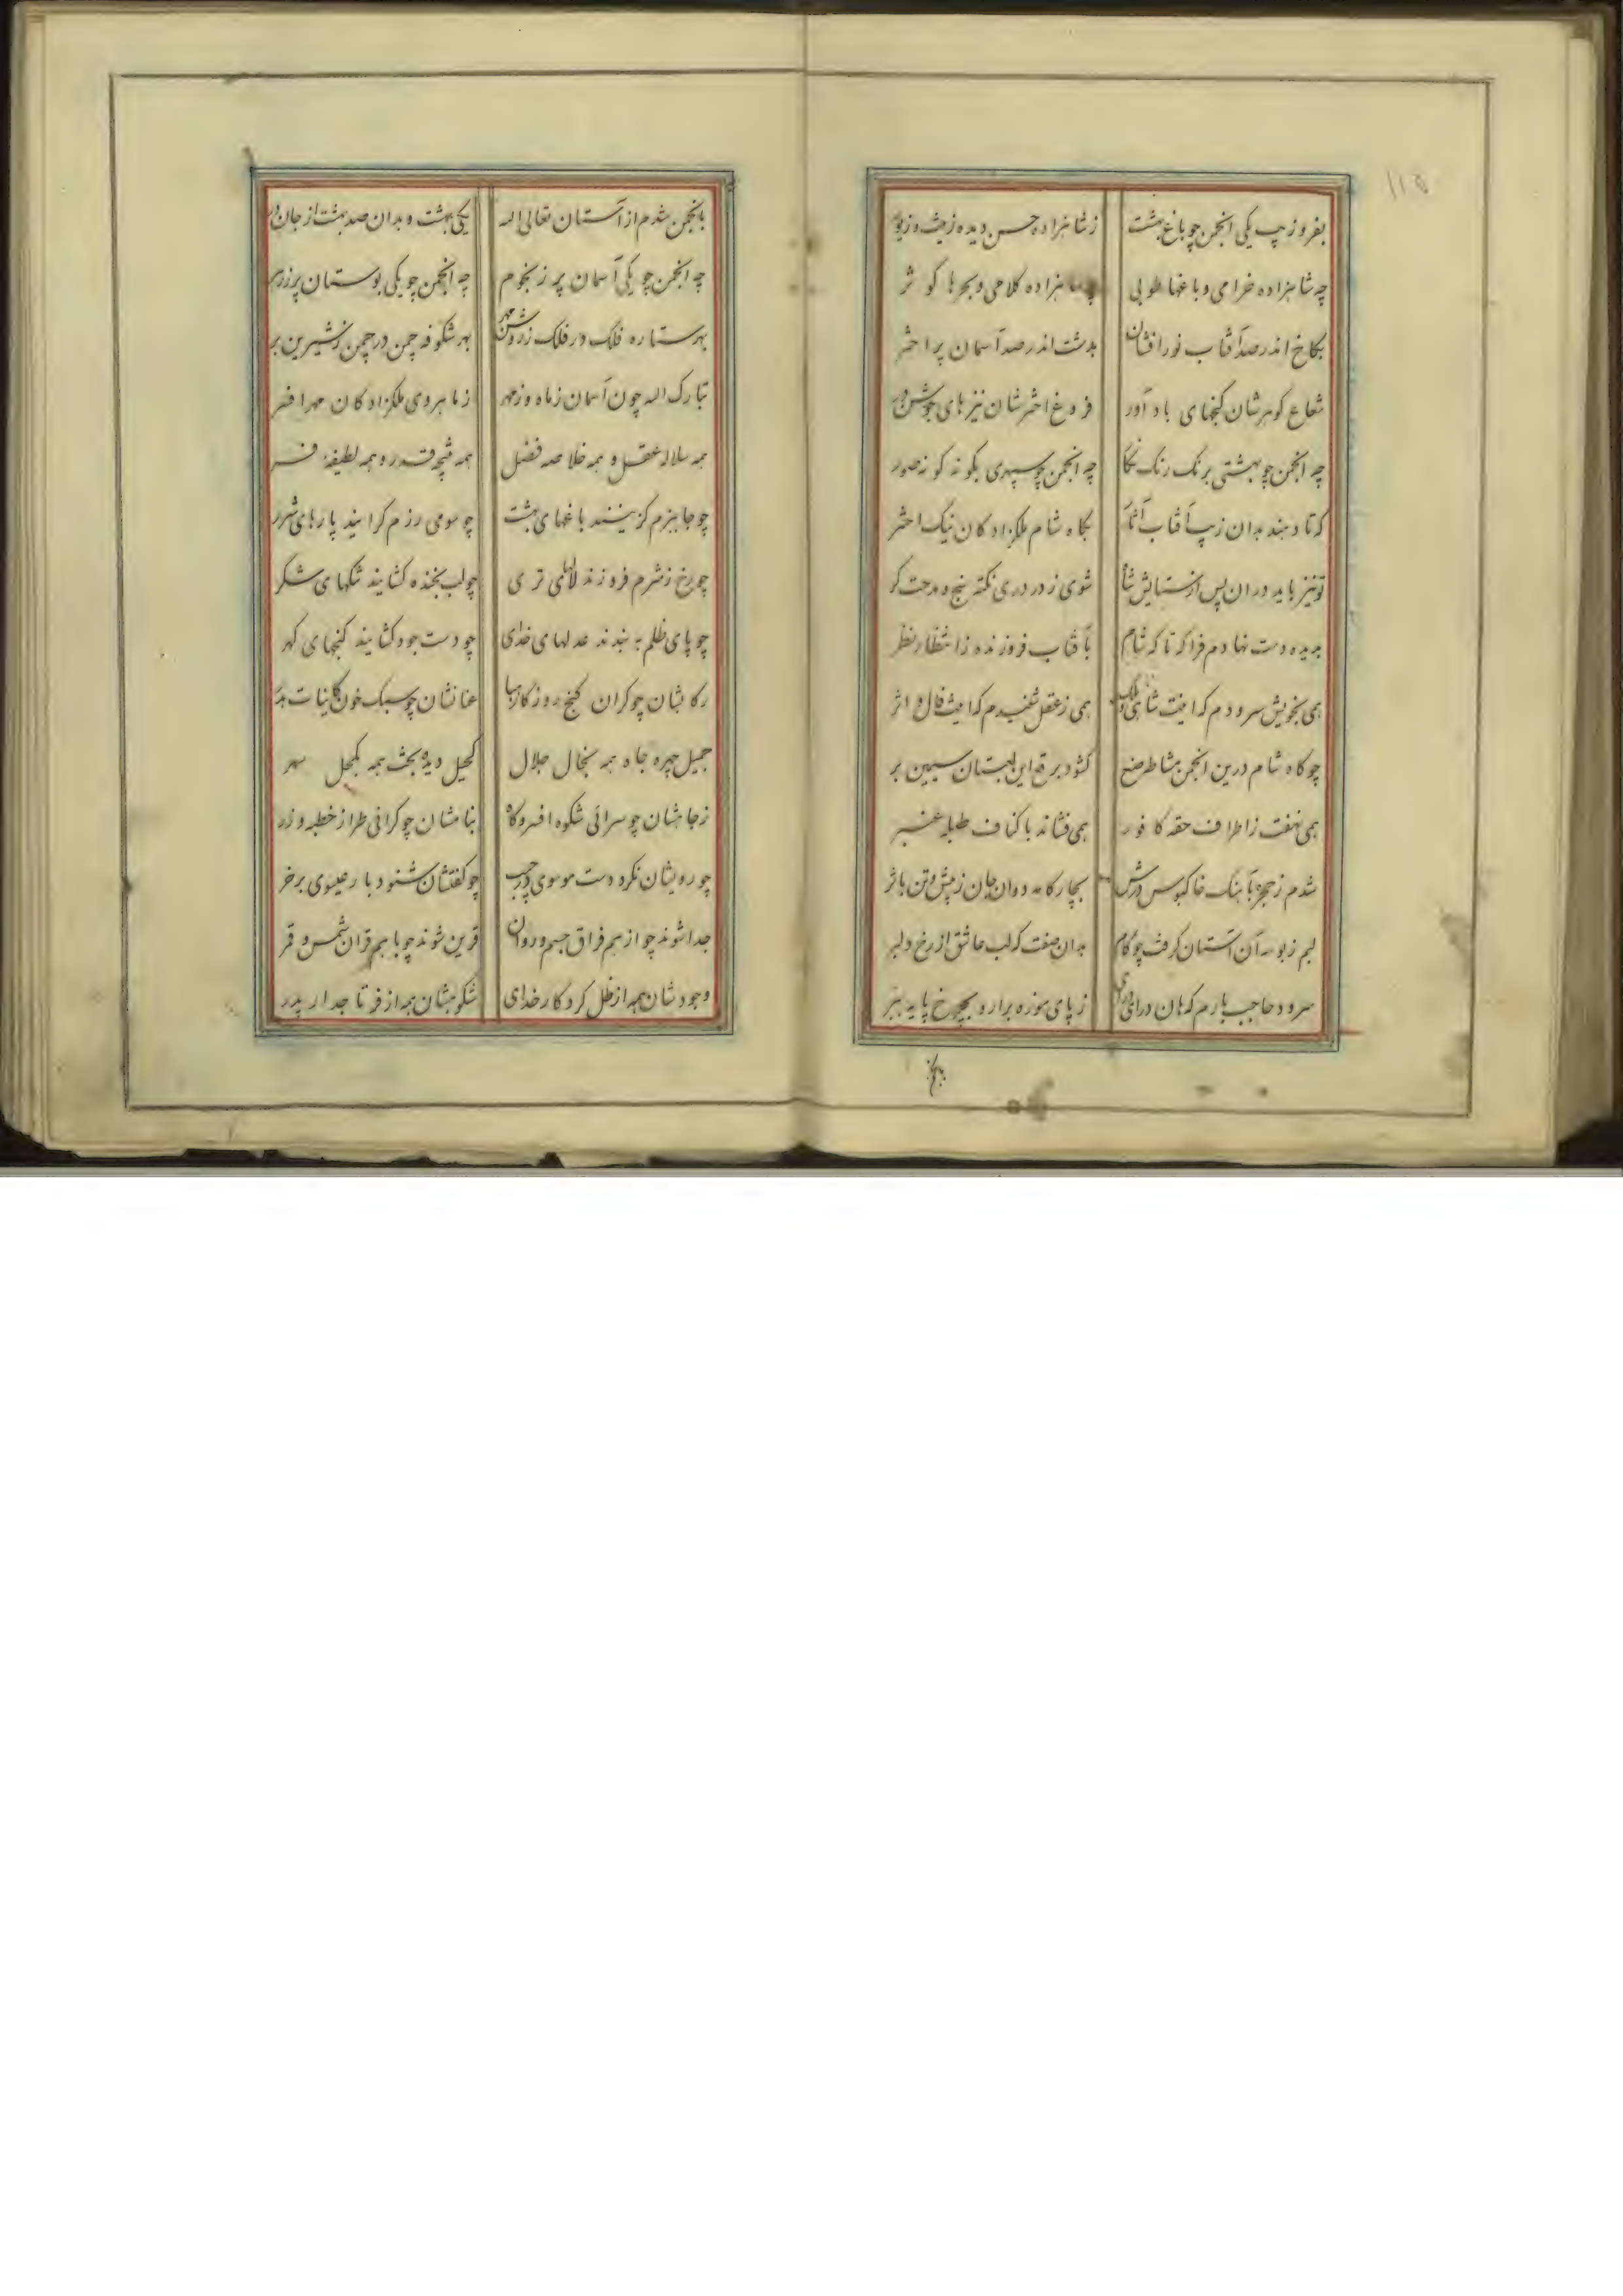 ۱۱۵
بفر و زیب یکی انجمن چو باغ بهشت
ز شاهزاده حسن دیده زیب و زیور
چه شاهزاده خرامی و باغها طوبی
شاهزاده کلامی و بحرها کوثر
بکاخ اندر صد آفتاب نورافشان
بدشت اندر صد آسمان پر اختر
شعاع کوهرشان کنجهای بادآور
فروغ اخترشان نیزهای جوشن در
چه انجمن چو بهشتی برنک رنک نکار
چه انجمن چو سپهری بکونه کونه صور
که تا دهند بدان زیب آفتاب آثار
بکاه شام ملکزادکان نیک اختر
تو نیز باید در ان پس از ستایش شاه
شوی ز در دری نکته سنج و مدحت کر
بدیده دست نهادم فرا که تا که شام
بآفتاب فروزنده ز انتظار نظر
همی بخویش سرودم که اینت شاهی و ملک
همی ز عقل شنیدم که اینت فال و اثر
چو کاه شام درین انجمن مشاطه صنع
کشود برقع این لعبتان سیمین بر
همی نهفت ز اطراف حقه کافور
همی فشاند باکناف طبله عنبر
شدم ز حجره بآهنک خاکبوس درش
بچارکامه دوان جان ز پیش و تن باثر
لبم ز بوسه آن آستان کرفت چو کام
بدان صفت که لب عاشق از رخ دلبر
سرود حاجب بارم که هان درای درای
ز پای موزه برار و بچرخ پایه ببر
بانجمن
بانجمن شدم از آستان تعالی الله
یکی بهشت و بدان صد بهشت از جان در
چه انجمن چو یکی آسمان پر ز نجوم
چه انجمن چو یکی بوستان پر ز زهر
بهر ستاره فلک در فلک ز روشن مهر
بهر شکوفه چمن در چمن ز شیرین بر
تبارک الله چون آسمان ز ماه و ز مهر
ز ماهروی ملکزادکان مهر افسر
همه سلاله عقل و همه خلاصه فضل
همه نتیجه قدر و همه لطیفه فر
چو جا ببزم کزینند باغهای بهشت
چو سوی رزم کرایند پارهای شرر
چو رخ ز شرم فروزند لالهای تری
چو لب بخنده کشایند تنکهای شکر
چو پای ظلم ببندند عدلهای خدای
چو دست جود کشایند کنجهای کهر
رکابشان چو کران کنج روزکار هبا
عنانشان چو سبک خون کاینات هدر
جمیل چهره جاه همه بخال جلال
کحیل دیده بخت همه بکحل سهر
ز جاهشان چو سرائی شکوه افسر و کاه
بنامشان چو کرانی طراز خطبه و زر
چو رویشان نکرد دست موسوی در جیب
چو کفتشان شنود بار عیسوی بر خر
جدا شوند چو از هم فراق جسم و روان
قرین شوند چو با هم قران شمس و قمر
وجودشان همه از ظل کردکار خدای
شکوهشان همه از فر تاجدار پدر